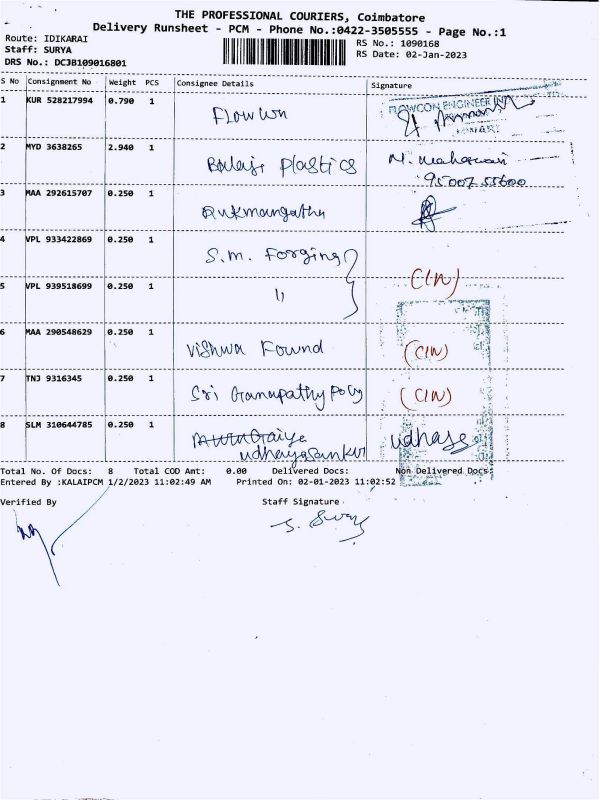 THE PROFESSIONAL COURIERS, Coimbatore
Delivery Runsheet - PCM - Phone No.:0422-3505555 - Page No.:1
Route: IDIKARAI
RS No.: 1090168
Staff: SURYA
RS Date: 02-Jan-2023
DRS No.: DCJB109016801
S No Consignment No Weight PCS Consignee Details Signature
1 KUR 528217994 0.790 1 Flowcon FLOWCON ENGINEERING
2 MYD 3638265 2.940 1 Balaji Plastics M. Maheswari
95007 55600
3 MAA 292615707 0.250 1 Rukmangatha
4 VPL 933422869 0.250 1 S.M. Forging
5 VPL 939518699 0.250 1 " (CIN)
6 MAA 290548629 0.250 1 Vishwa Found (CIN)
7 TNJ 9316345 0.250 1 Sri Ganapathy Poly (CIN)
8 SLM 310644785 0.250 1 udhayasankar udhaya
Total No. Of Docs: 8 Total COD Amt: 0.00 Delivered Docs: Non Delivered Docs:
Entered By :KALAIPCM 1/2/2023 11:02:49 AM Printed On: 02-01-2023 11:02:52
Verified By Staff Signature
S. Surya